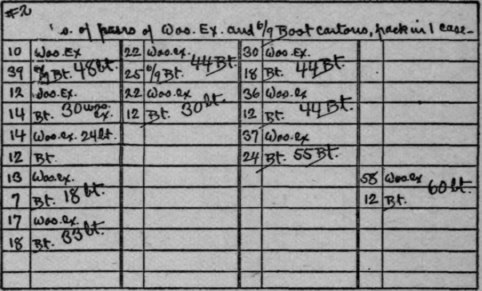 #2
's. of pairs of Woo. Ex. and 6/9 Boot cartons, pack in 1 case-
10 Woo. Ex 22 Woo. ex. 30 Woo. Ex.
39 Bt. 48 bt. 25 6/9 Bt. 44 Bt. 18 Bt. 44 Bt.
12 Woo. Ex. 22 Woo. ex. 36 Woo. Ex
14 Bt. 30 woo. ex. 12 Bt. 30 bt. 12 Bt. 44 Bt.
14 Woo. ex. 24 bt. 37 Woo. ex
12 Bt. 24 Bt. 55 Bt.
13 Woo. ex. 58 Woo. ex
7 Bt. 18 bt. 12 Bt. 60 bt.
17 Woo. ex.
18 Bt. 33 bt.